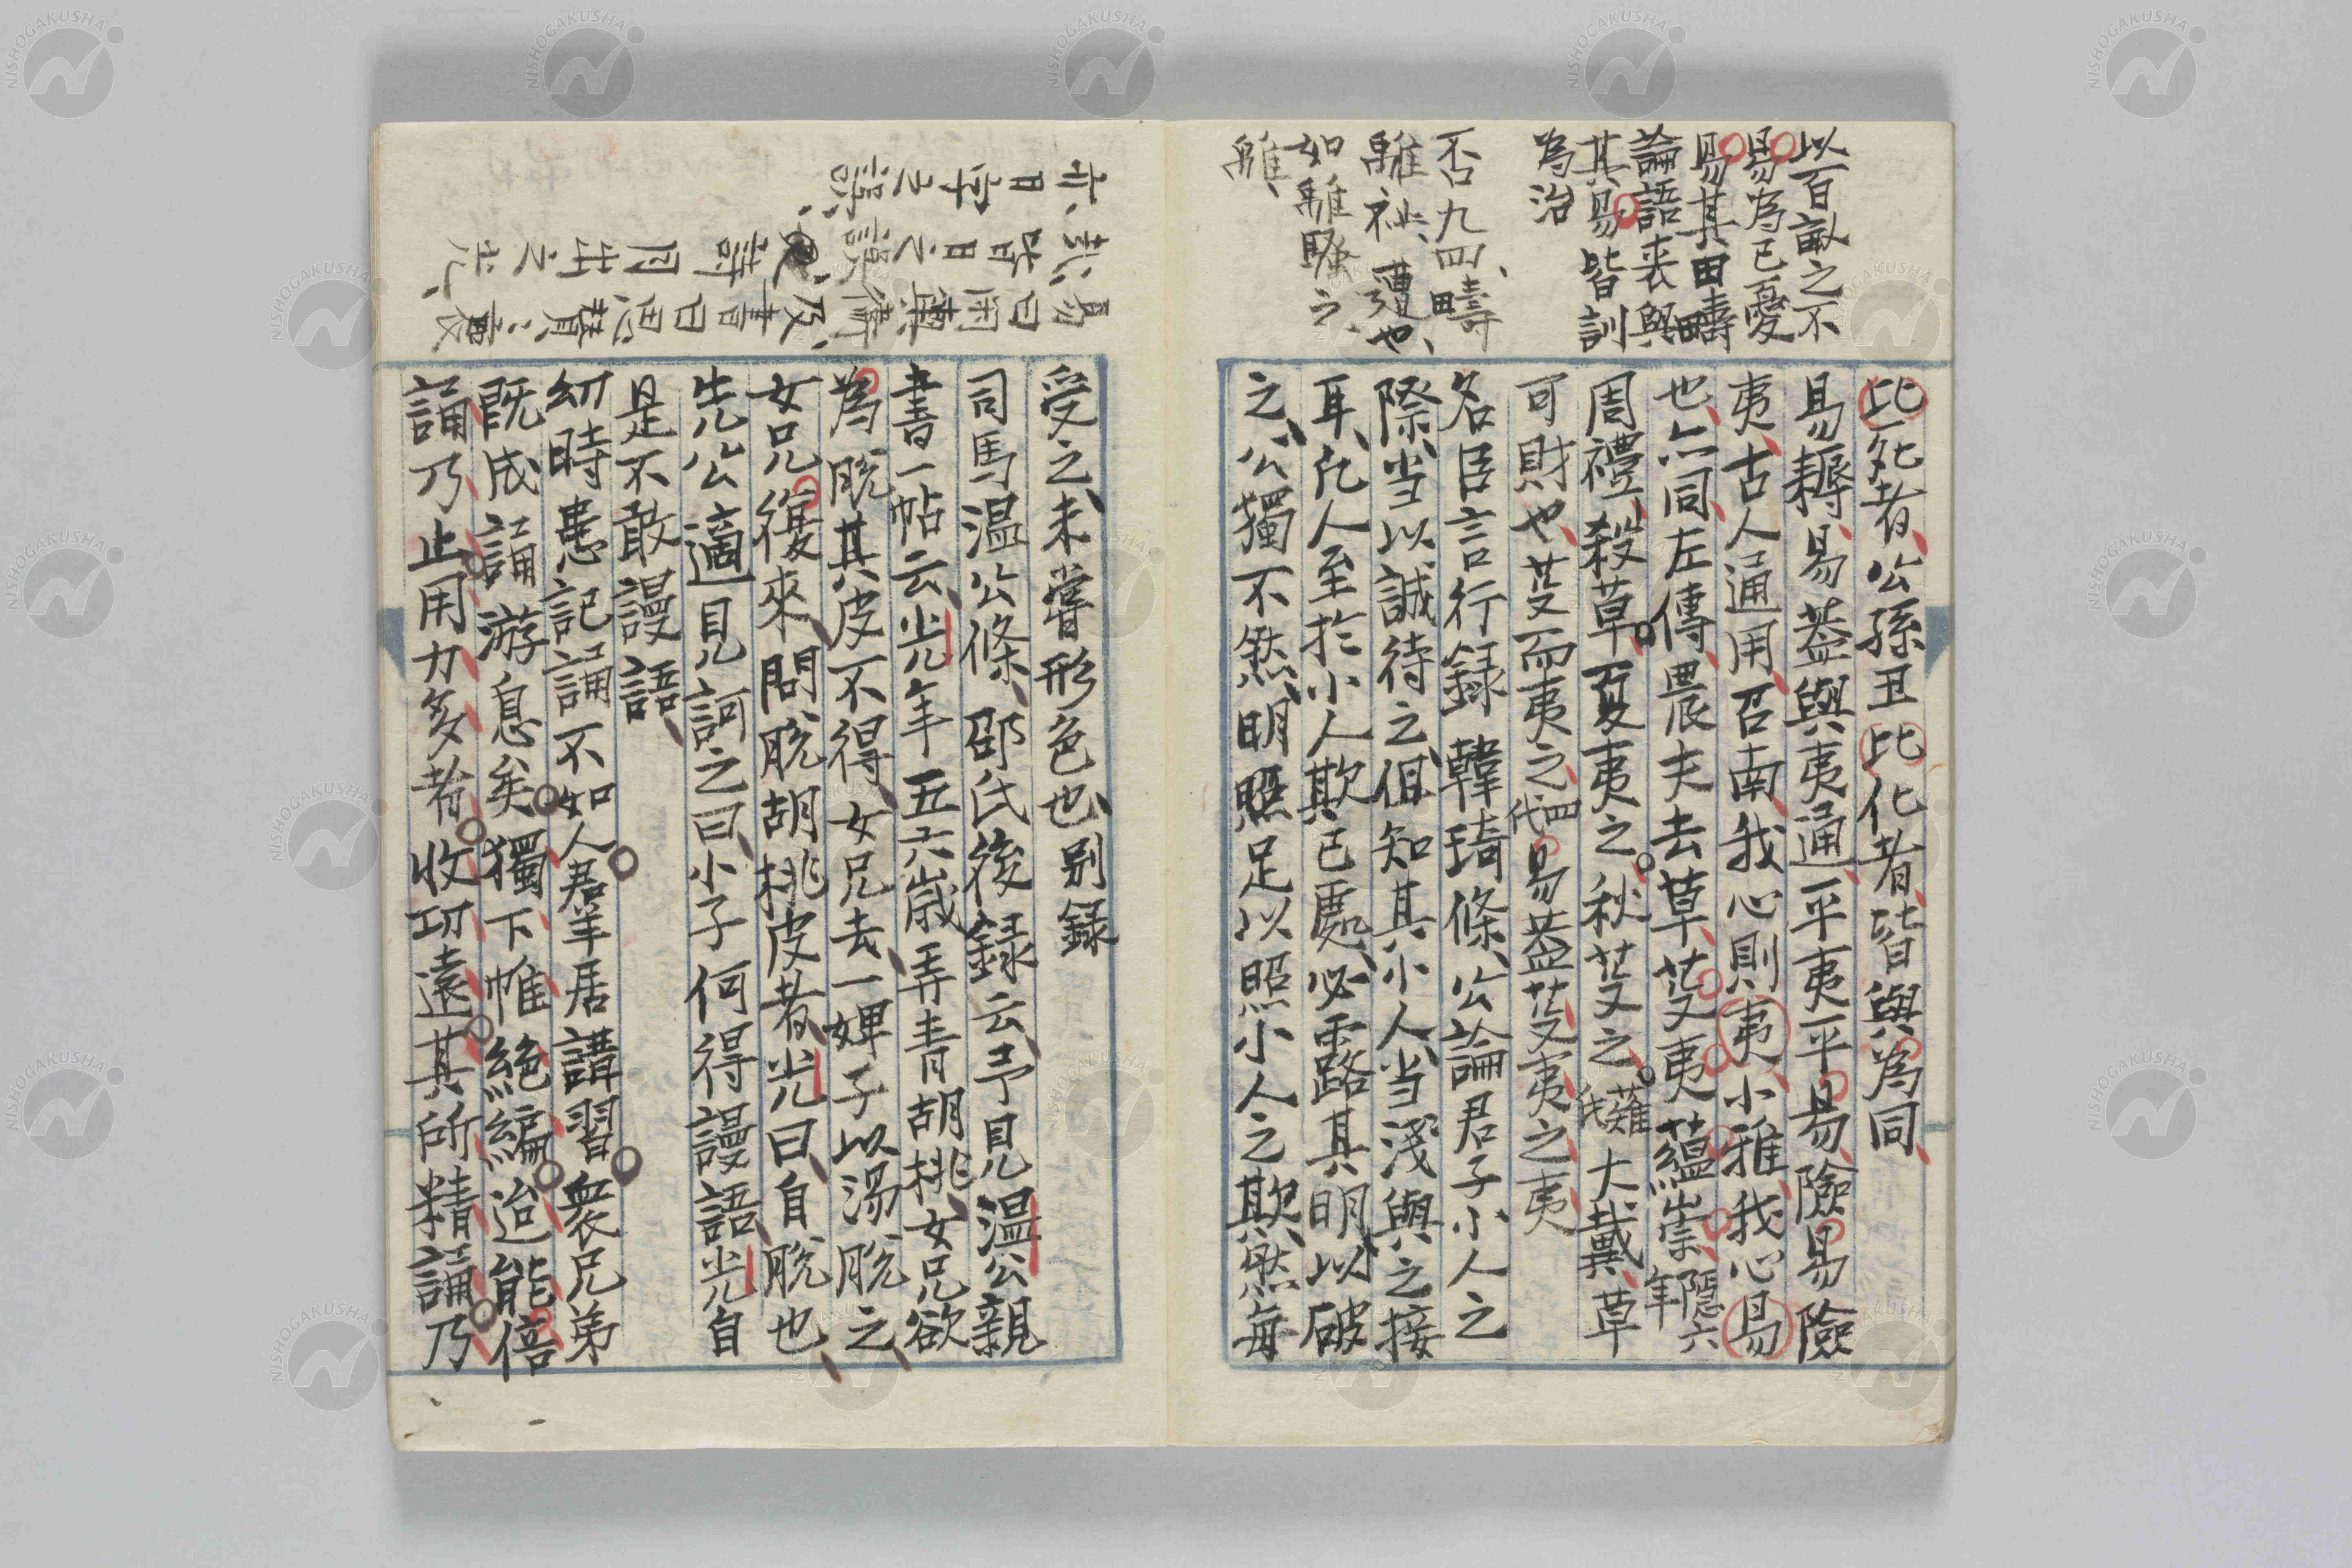 以百畝之不
易為己憂
易其田疇
論語喪與
其易皆訓
為治
否九四、疇
離祉、遭也、
如離騷之、
離、
比死者、公孫丑比化者、皆與為同、
易耨、易蓋與夷通、平夷平易、險易險
夷、古人通用、召南、我心則夷、小雅我心易
也、亦同、左傳、畏夫去草、芟夷蘊崇、隱六年
周禮、殺草、夏夷之、秋芟之、薙氏大戴、草
可財也、芟而夷之、四代易蓋芟夷之夷
名臣言行録 韓琦條、公論君子小人之
際、当以誠待之、但知其小人、当淺與之接
耳、凡人至於小人欺己處、必露其明以破
之、公獨不然、明照足以照小人之欺、然毎
受之、未嘗形色也、別録
司馬温公條、邵氏後録云、予見温公親
書一帖云、光年五六歳、弄青胡桃、女兄欲
為脱其皮不得、女兄去、一婢子以湯脱之、
女兄復來、問脱胡桃皮者、光曰、自脱也、
先公適見、訶之曰、小子何得謾語、光自
是不敢謾語、
幼時患記誦不如人、羣居講習、衆兄弟
既成誦游息矣、獨下帷絶編、迨能倍
誦乃止、用力多者、收功遠、其所精誦、乃